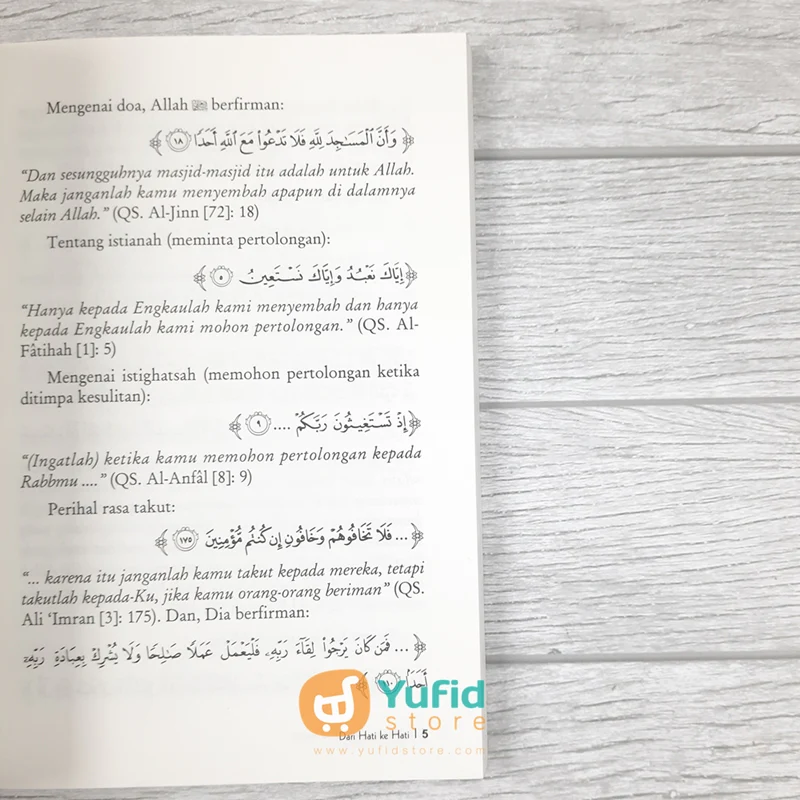 Mengenai doa, Allah ﷻ berfirman:
﴿ وَأَنَّ الْمَسَاجِدَ لِلَّهِ فَلَا تَدْعُوا مَعَ اللَّهِ أَحَدًا ١٨ ﴾
“Dan sesungguhnya masjid-masjid itu adalah untuk Allah.
Maka janganlah kamu menyembah apapun di dalamnya
selain Allah.” (QS. Al-Jinn [72]: 18)
Tentang istianah (meminta pertolongan):
﴿ إِيَّاكَ نَعْبُدُ وَإِيَّاكَ نَسْتَعِينُ ٥ ﴾
“Hanya kepada Engkaulah kami menyembah dan hanya
kepada Engkaulah kami mohon pertolongan.” (QS. Al-
Fâtihah [1]: 5)
Mengenai istighatsah (memohon pertolongan ketika
ditimpa kesulitan):
﴿ إِذْ تَسْتَغِيثُونَ رَبَّكُمْ .... ٩ ﴾
“(Ingatlah) ketika kamu memohon pertolongan kepada
Rabbmu ....” (QS. Al-Anfâl [8]: 9)
Perihal rasa takut:
﴿ ... فَلَا تَخَافُوهُمْ وَخَافُونِ إِن كُنتُم مُّؤْمِنِينَ ١٧٥ ﴾
“... karena itu janganlah kamu takut kepada mereka, tetapi
takutlah kepada-Ku, jika kamu orang-orang beriman” (QS.
Ali ‘Imran [3]: 175). Dan, Dia berfirman:
﴿ ... فَمَن كَانَ يَرْجُوا لِقَاءَ رَبِّهِ فَلْيَعْمَلْ عَمَلًا صَالِحًا وَلَا يُشْرِكْ بِعِبَادَةِ رَبِّهِ
أَحَدًا ١١٠ ﴾
Yufid
store
www.yufidstore.com
Dari Hati ke Hati | 5